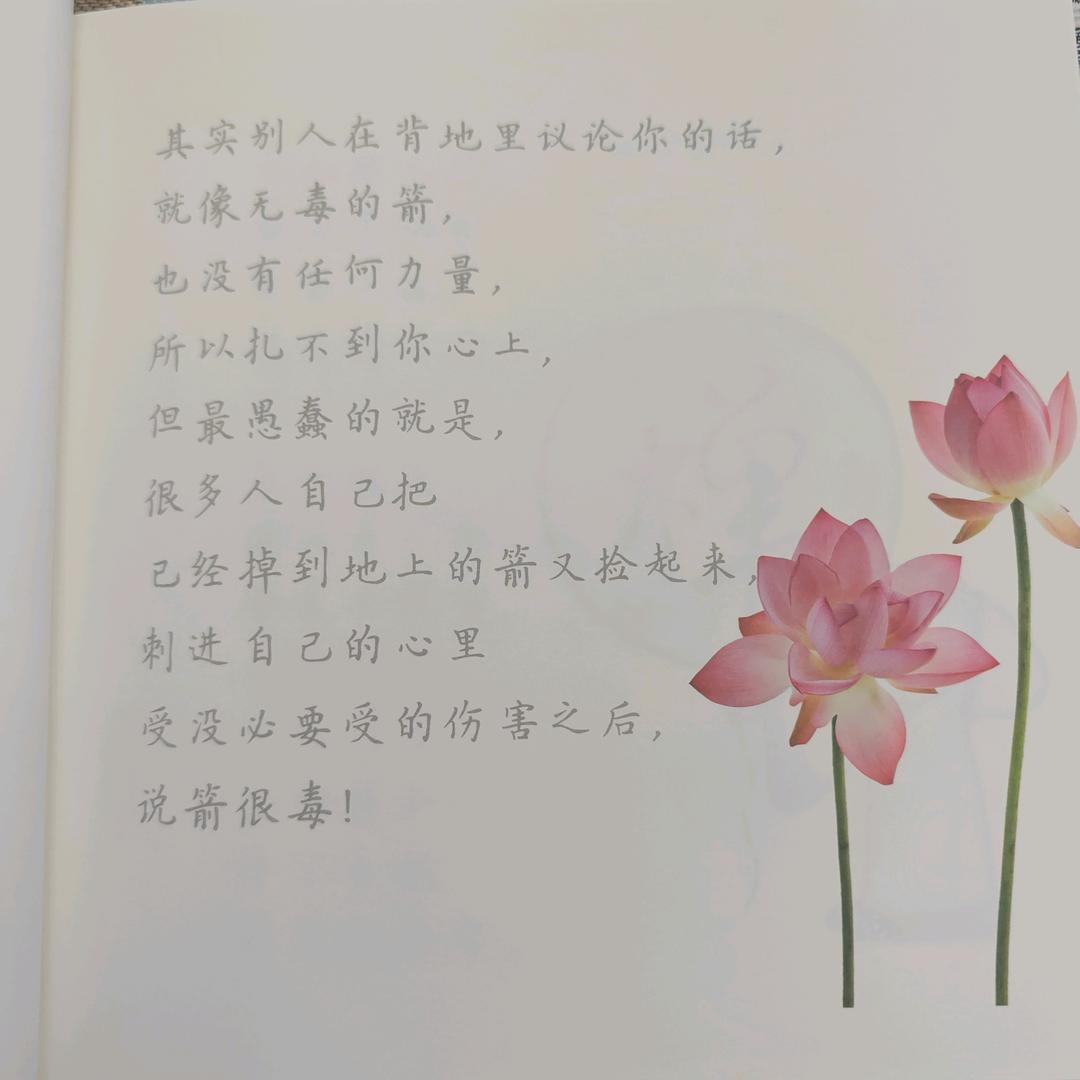 其实别人在背地里议论你的话，
就像无毒的箭，
也没有任何力量，
所以扎不到你心上，
但最愚蠢的就是，
很多人自己把
已经掉到地上的箭又捡起来，
刺进自己的心里
受没必要受的伤害之后，
说箭很毒！